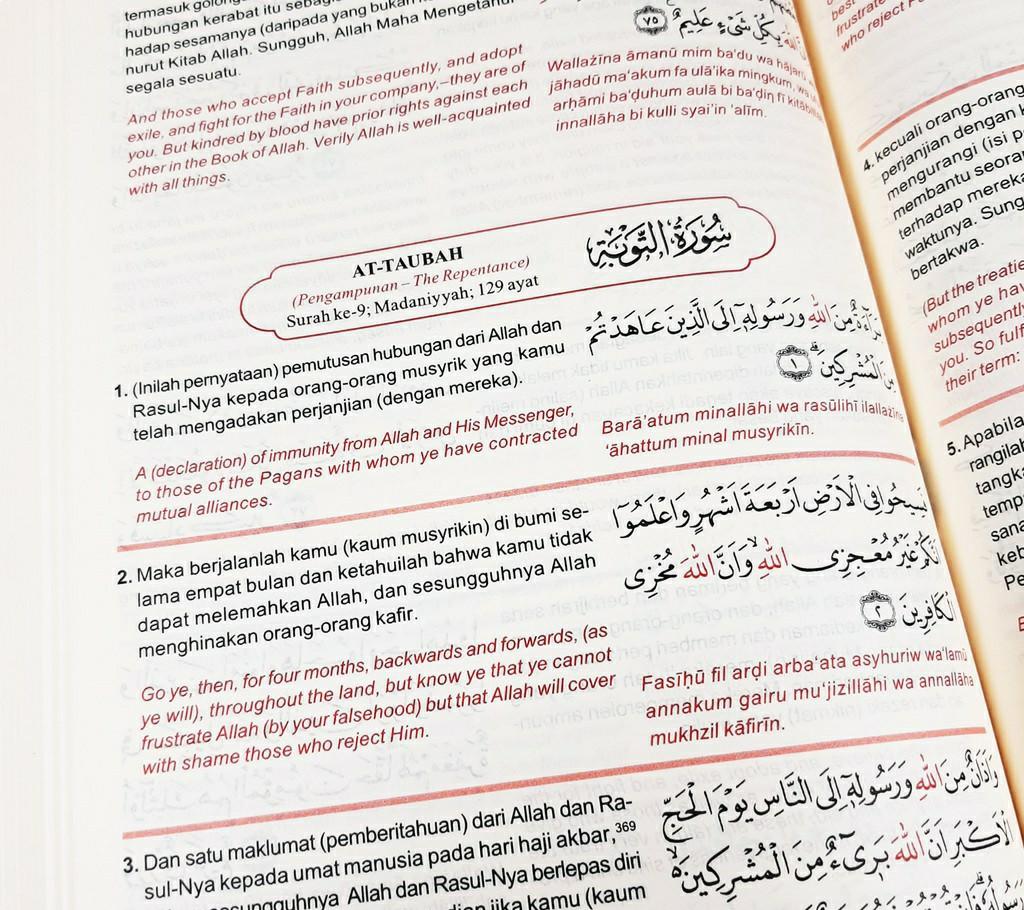 termasuk
hubungan kerabat itu
hadap sesamanya (daripada yang bukan
nurut Kitab Allah. Sungguh, Allah Maha
segala sesuatu.
And those who accept Faith subsequently, and adopt
exile, and fight for the Faith in your company,–they are of
you. But kindred by blood have prior rights against each
other in the Book of Allah. Verily Allah is well-acquainted
with all things.
بِكُلِّ شَيْءٍ عَلِيمٌ ٧٥
Wallażīna āmanū mim ba'du wa
jāhadū ma'akum fa ulā'ika mingkum,
arḥāmi ba'ḍuhum aulā bi ba'ḍin fī
innallāha bi kulli syai'in 'alīm.
AT-TAUBAH
(Pengampunan – The Repentance)
Surah ke-9; Madaniyyah; 129 ayat
سُورَةُ التَّوْبَةِ
1. (Inilah pernyataan) pemutusan hubungan dari Allah dan
Rasul-Nya kepada orang-orang musyrik yang kamu
telah mengadakan perjanjian (dengan mereka).
A (declaration) of immunity from Allah and His Messenger,
to those of the Pagans with whom ye have contracted
mutual alliances.
بَرَآءَةٌ مِنَ اللهِ وَرَسُولِهٖٓ اِلَى الَّذِينَ عَاهَدْتُمْ
مِنَ الْمُشْرِكِينَ ۗ ١
Barā'atum minallāhi wa rasūlihī ilallażīna
'āhattum minal musyrikīn.
2. Maka berjalanlah kamu (kaum musyrikin) di bumi se-
lama empat bulan dan ketahuilah bahwa kamu tidak
dapat melemahkan Allah, dan sesungguhnya Allah
menghinakan orang-orang kafir.
Go ye, then, for four months, backwards and forwards, (as
ye will), throughout the land, but know ye that ye cannot
frustrate Allah (by your falsehood) but that Allah will cover
with shame those who reject Him.
فَسِيحُوا فِي الْاَرْضِ اَرْبَعَةَ اَشْهُرٍ وَاعْلَمُوٓا
اَنَّكُمْ غَيْرُ مُعْجِزِى اللهِ ۙ وَاَنَّ اللهَ مُخْزِى
الْكَافِرِينَ ٢
Fasīḥū fil arḍi arba'ata asyhuriw wa'lamū
annakum gairu mu'jizillāhi wa annallāha
mukhzil kāfirīn.
3. Dan satu maklumat (pemberitahuan) dari Allah dan Ra-
sul-Nya kepada umat manusia pada hari haji akbar,³⁶⁹
Allah dan Rasul-Nya berlepas diri
jika kamu (kaum
وَاَذَانٌ مِنَ اللهِ وَرَسُولِهٖٓ اِلَى النَّاسِ يَوْمَ الْحَجِّ
الْاَكْبَرِ اَنَّ اللهَ بَرِىٓءٌ مِنَ الْمُشْرِكِينَ ۙ
frustrate
who reject
4. kecuali orang-orang
perjanjian dengan
mengurangi (isi
membantu
terhadap
waktunya.
bertakwa.
(But the
whom ye
subsequently
you. So
their term:
5. Apabila